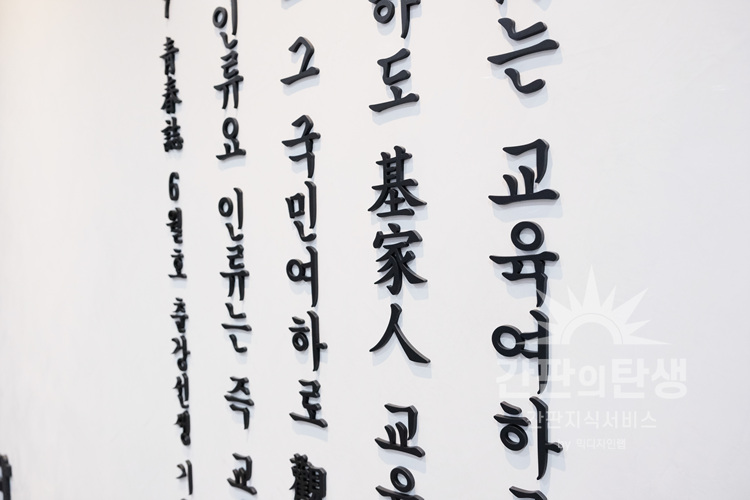 는 교육여하
하도 基家人 교육
그 국민여하로 觀
인류요 인류는 즉 교
靑春誌 6월호 춘강선생
간판의탄생
간판지식서비스
by